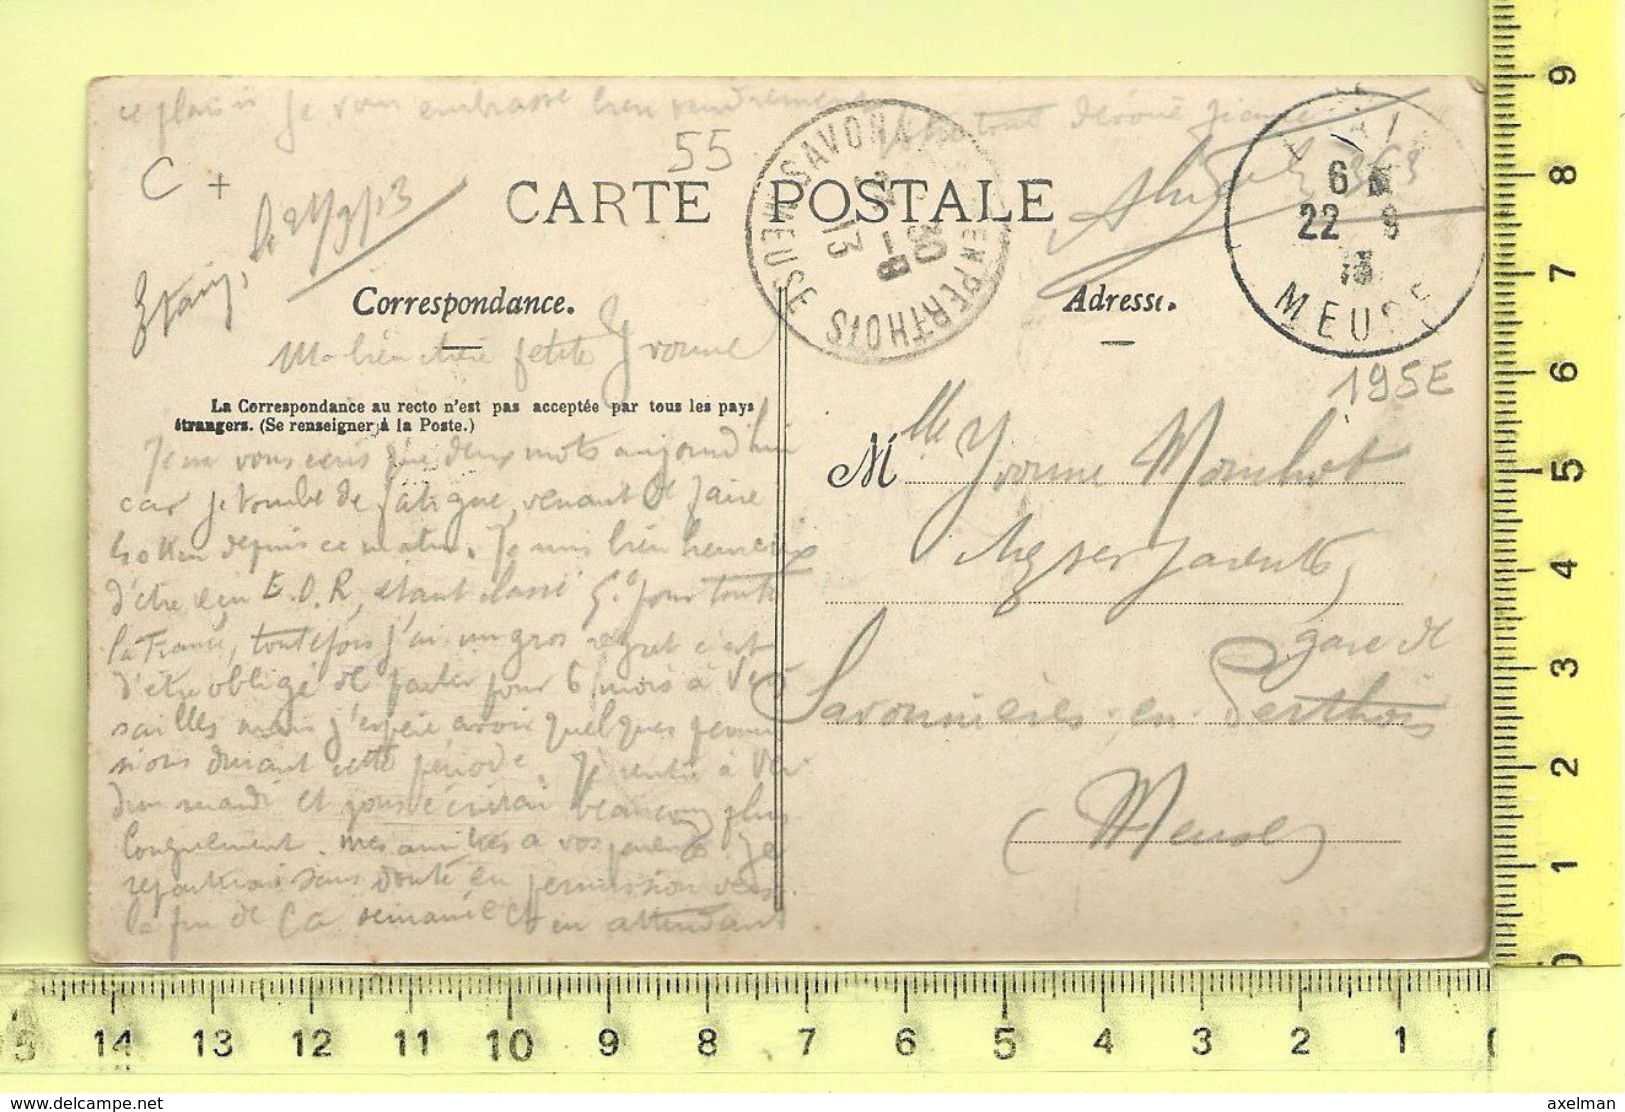 ce plaisir je vous embrasse bien tendrement
tout dévoué
C +
55
CARTE POSTALE
SAVONN EN PERTHOIS MEUSE
30
13
6
22 9
13
MEUSE
Etain, le 21/9/13
Correspondance.
Adresse.
Ma bien chère petite Yvonne
195E
La Correspondance au recto n'est pas acceptée par tous les pays
étrangers. (Se renseigner à la Poste.)
Je ne vous écris que deux mots aujourd'hui
car je tombe de fatigue, venant de faire
60 Km depuis ce matin. Je suis bien heureux
d'être reçu E.O.R, étant classé 5e pour toute
la France, toutefois j'ai un gros regret c'est
d'être obligé de partir pour 6 mois à Ver
sailles mais j'espère avoir quelques permis
sions durant cette période. Je rentre à Ver
dun mardi et vous écrirai beaucoup plus
longuement. mes amitiés à vos parents. Je
repartirai sans doute en permission vers
la fin de la semaine et en attendant
Mlle Yvonne Mombrot
chez ses parents,
gare de
Savonnières-en-Perthois
(Meuse)
9
8
7
6
5
4
3
2
1
0
5 14 13 12 11 10 9 8 7 6 5 4 3 2 1
delcampe.net
axelman